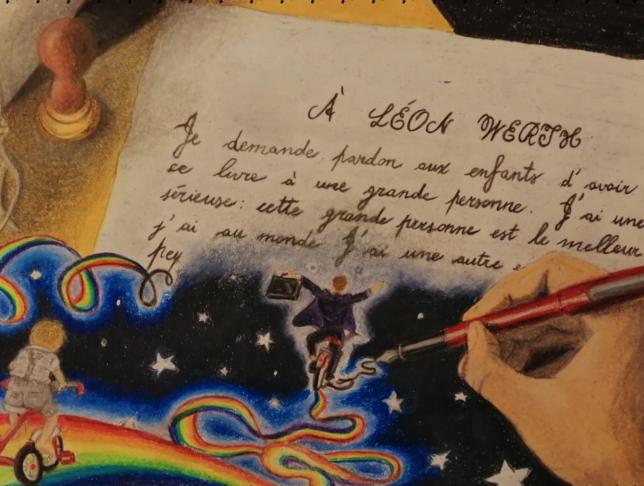 À LÉON WERTH
Je demande pardon aux enfants d'avoir
ce livre à une grande personne. J'ai une
sérieuse: cette grande personne est le meilleur
j'ai au monde J'ai une autre e